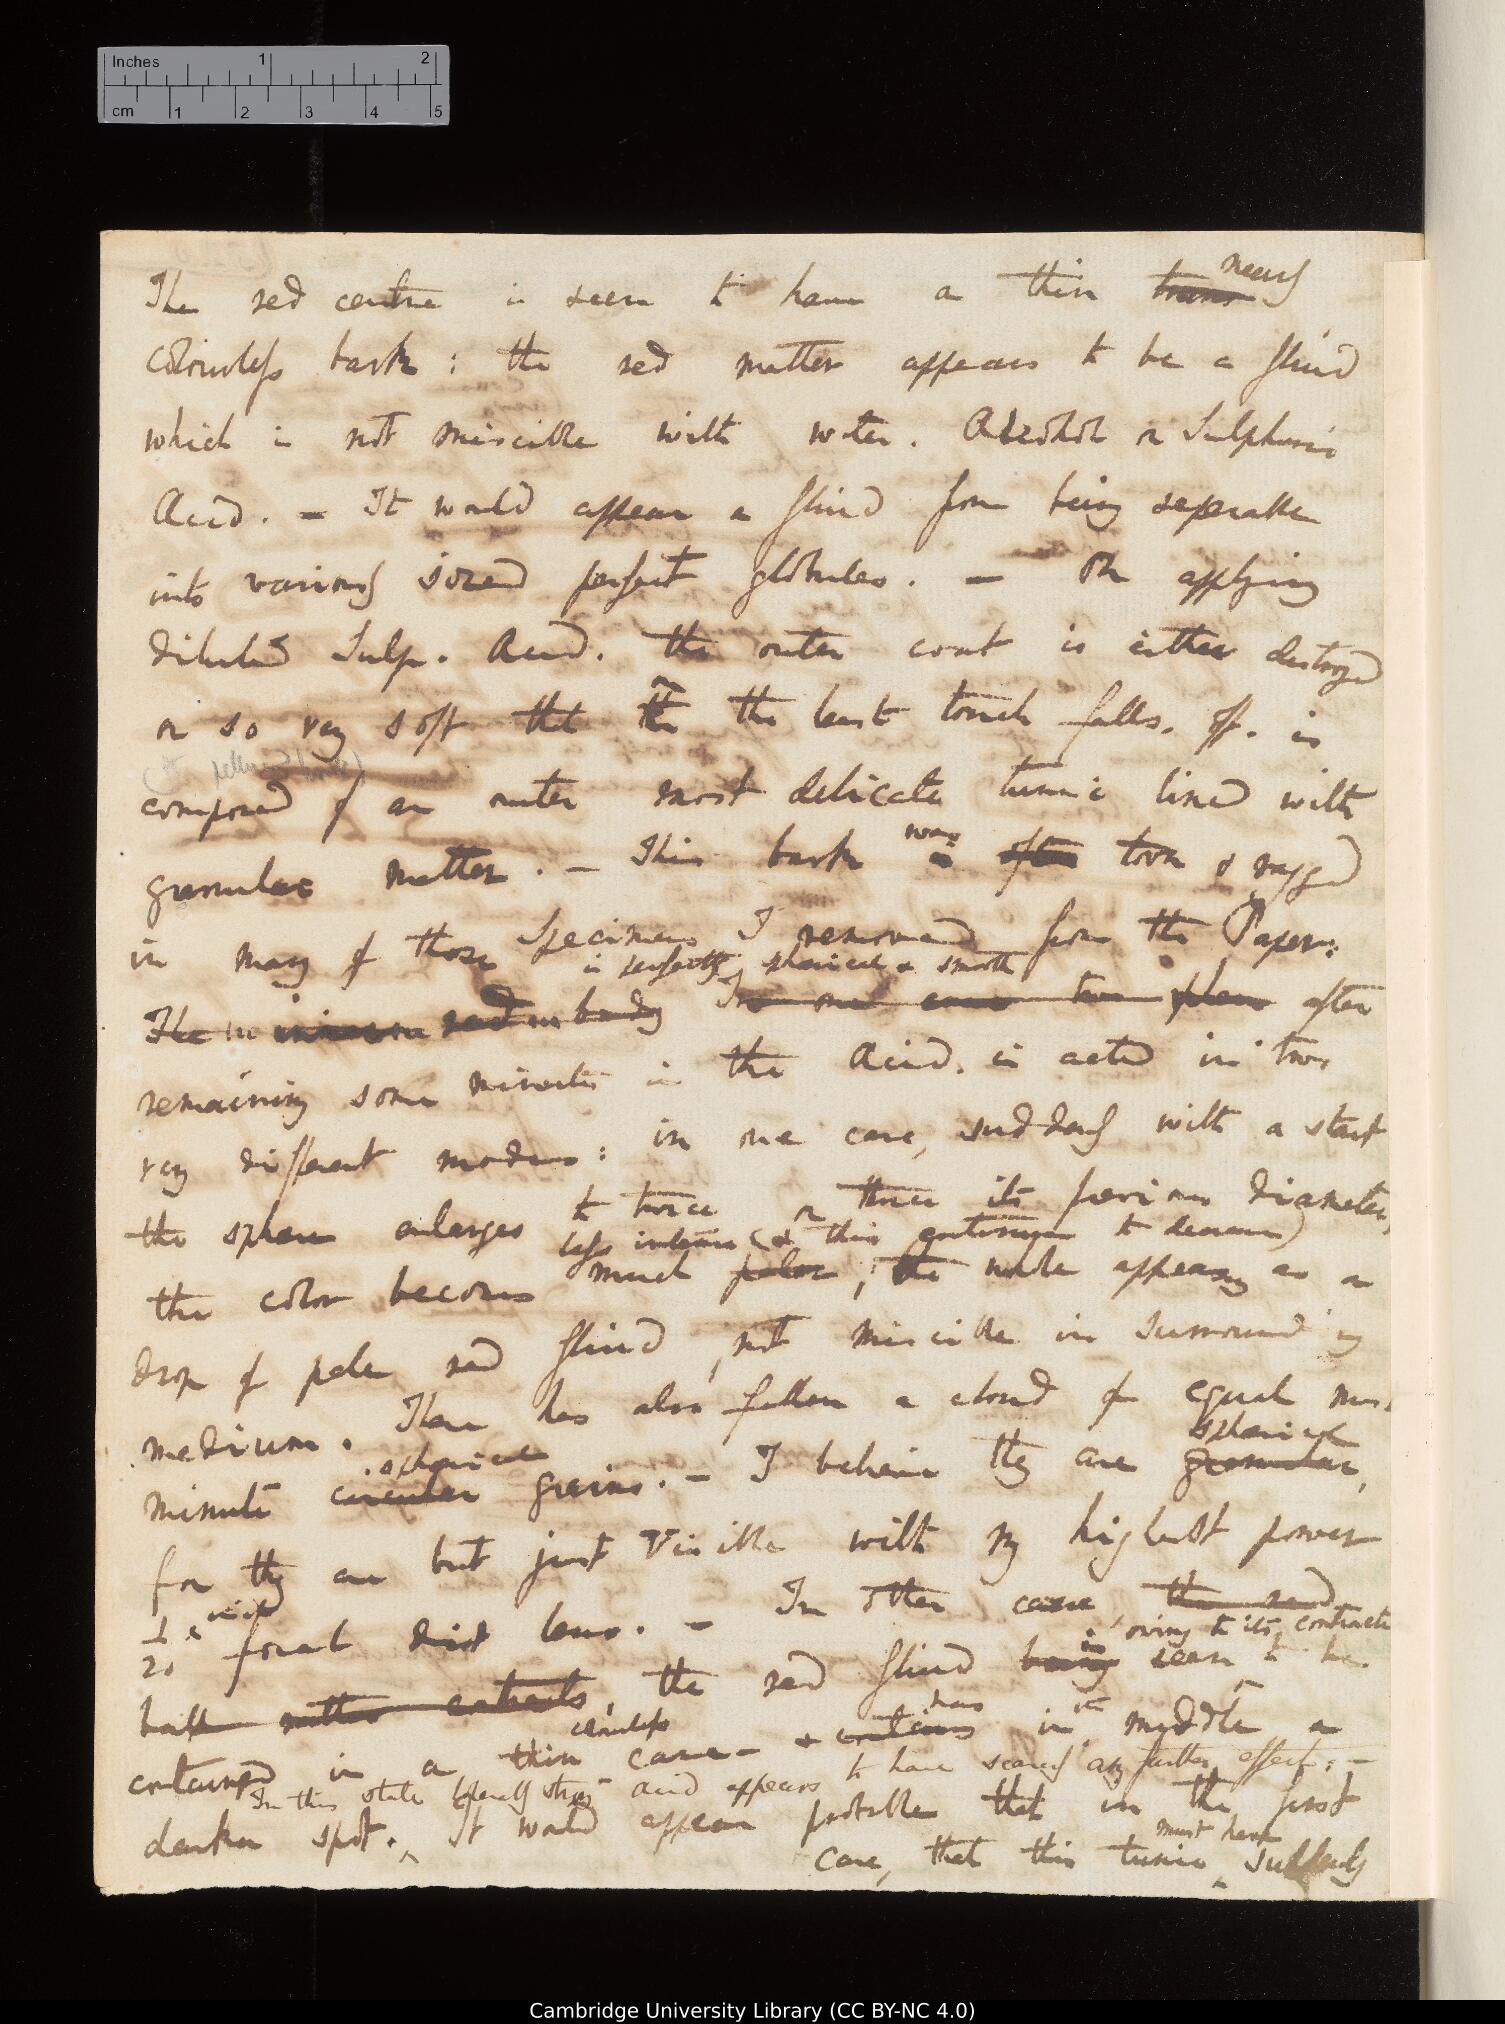 Inches 1 2
cm 1 2 3 4 5
nearly
The red centre is seen to have a thin trans
colourless bark: the red matter appears to be a fluid
which is not miscible with water. Alcohol or Sulphuric
Acid. — It would appear a fluid from being seperable
into variously sized perfect globules. — On applying
diluted Sulp. Acid. the outer coat is either destroyed
or so very soft that the least touch falls. off. is
composed of an outer most delicate tunic lined with
granular matter. — This bark was is often torn & ragged
in many of those Specimens I removed from the Paper:
is perfectly spherical & smooth
The red body In one case two after
remaining some minutes in the Acid. is acted in two
very different modes: in one case, suddenly with a start
the sphere enlarges to twice or thrice its previous diameter,
less intense (& this continues to decrease)
the color becomes much paler; the whole appearing as a
drop of pale red fluid, not miscible in surrounding
medium. There has also fallen a cloud of equal
spherical spherical
minute circular grains. — I believe they are granular,
for they are but just visible with my highest power
1/20 inch focal dist lens. — In other case the red
is owing to its contracti
ball matter contracts, the red fluid being seen to be
colourless has
contained in a thin case — & contains in the middle a
In this state strong acid appears to have scarcely any further effect: —
darker spot. It would appear probable that in the first
must have
case, that this tunic suddenly
Cambridge University Library (CC BY-NC 4.0)